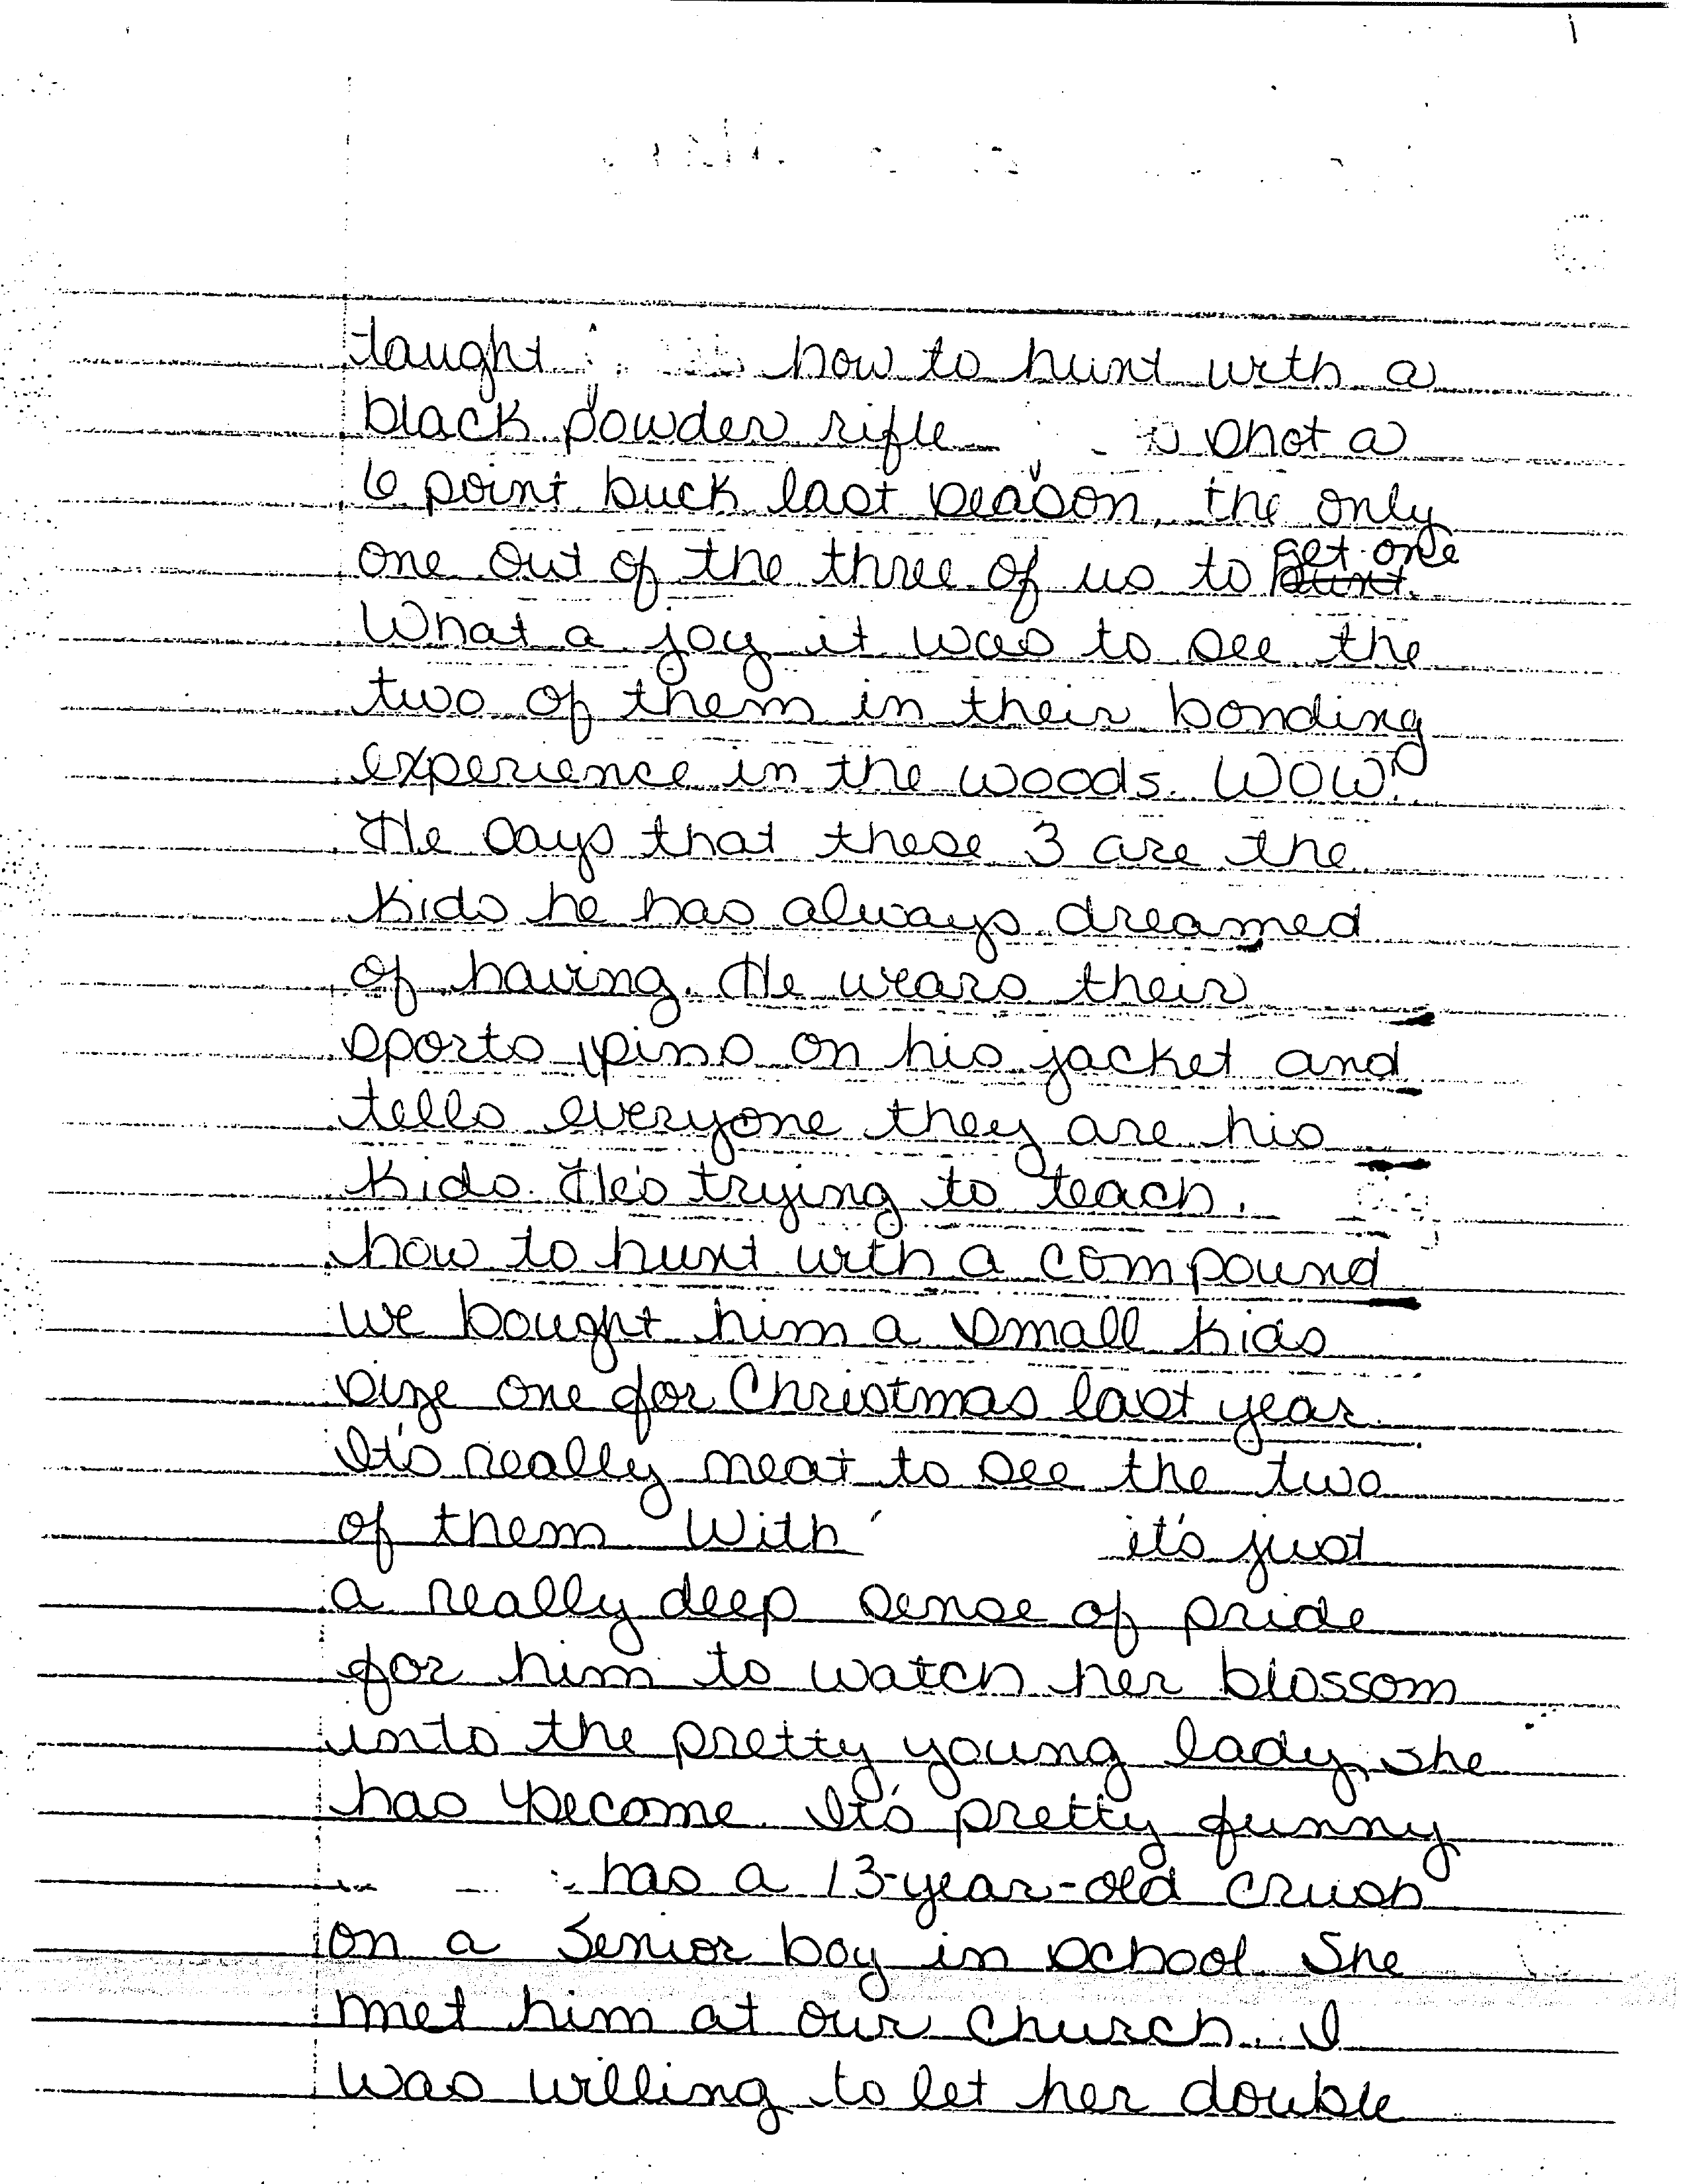 taught how to hunt with a
black powder rifle shot a
6 point buck last season, the only
one out of the three of us to hunt. get one
What a joy it was to see the
two of them in their bonding
experience in the woods. WOW!
He says that these 3 are the
kids he has always dreamed
of having. He wears their
sports pins on his jacket and
tells everyone they are his
kids. He's trying to teach
how to hunt with a compound
we bought him a small kids
size one for Christmas last year.
It's really neat to see the two
of them with it's just
a really deep sense of pride
for him to watch her blossom
into the pretty young lady, she
has become. It's pretty funny
has a 13-year-old crush
on a Senior boy in school. She
met him at our church. I
was willing to let her double